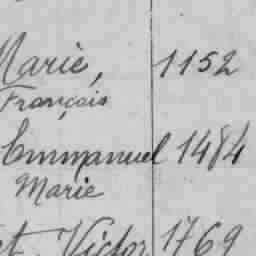 Marie, 1152
François
Emmanuel 1484
Marie
et Victor 1769